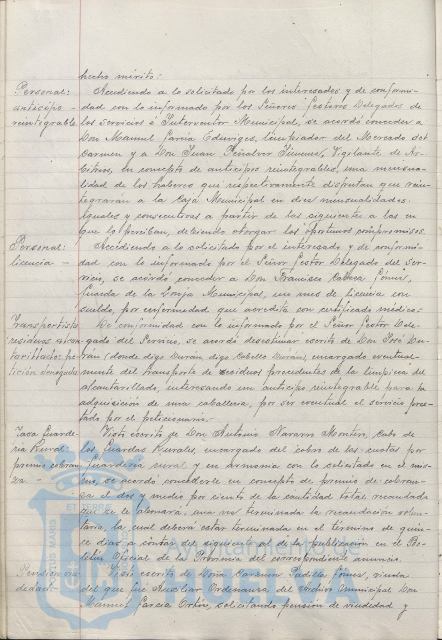 hecho mérito:
Personal: Accediendo a lo solicitado por los interesados y de conformi-
anticipo dad con lo informado por los Señores Gestores Delegados de
reintegrable los servicios é Interventor Municipal, se acordó conceder a
Don Manuel García Eduviges, limpiador del Mercado del
Carmen y a Don Juan Peñalver Jimena, Vigilante de Ar-
bitrios, en concepto de anticipo reintegrables, una mensua-
lidad de los haberes que respectivamente disfrutan que rein-
tegraran a la Caja Municipal en diez mensualidades
iguales y consecutivas a partir de las siguiente a las en
que lo perciban, debiendo otorgar los oportunos compromisos.
Personal: Accediendo a lo solicitado por el interesado y de conformi-
licencia dad con lo informado por el Señor Gestor Delegado del ser-
vicio, se acordó conceder a Don Francisco Gómez,
Guarda de la Lonja Municipal, un mes de licencia con
sueldo, por enfermedad que acredita con certificado médico.
Transportista De conformidad con lo informado por el Señor Gestor Dele-
residuos alcan- gado del Servicio, se acordó desestimar escrito de Don José Du-
tarillados: pe- rán (donde digo Durán, digo Cabello Durán), encargado eventual-
tición denegada mente del transporte de residuos procedentes de la limpieza del
alcantarillado, interesando un anticipo reintegrable para la
adquisición de una caballería, por ser eventual el servicio pres-
tado por el peticionario.
Tasa Guarde- Visto escrito de Don Antonio Navarro Montero, Cabo de
ría Rural: los Guardas Rurales, encargado del cobro de las cuotas por
premio cobran- Guardería rural y en armonía con lo solicitado en el mis-
za mo, se acordó concederle en concepto de premio de cobran-
za el dos y medio por ciento de la cantidad total recaudada
que se le abonará, una vez terminada la recaudación volun-
taria, la cual deberá estar terminada en el término de quin-
ce días a contar del siguiente al de la publicación en el Bo-
letín Oficial de la Provincia del correspondiente anuncio.
Pensión viu- Visto escrito de Doña Carmen Padilla Gómez, viuda
dedad: del que fué Auxiliar Ordenanza del Archivo Municipal Don
Manuel García Ortín, solicitando pensión de viudedad y
Ayuntamiento de